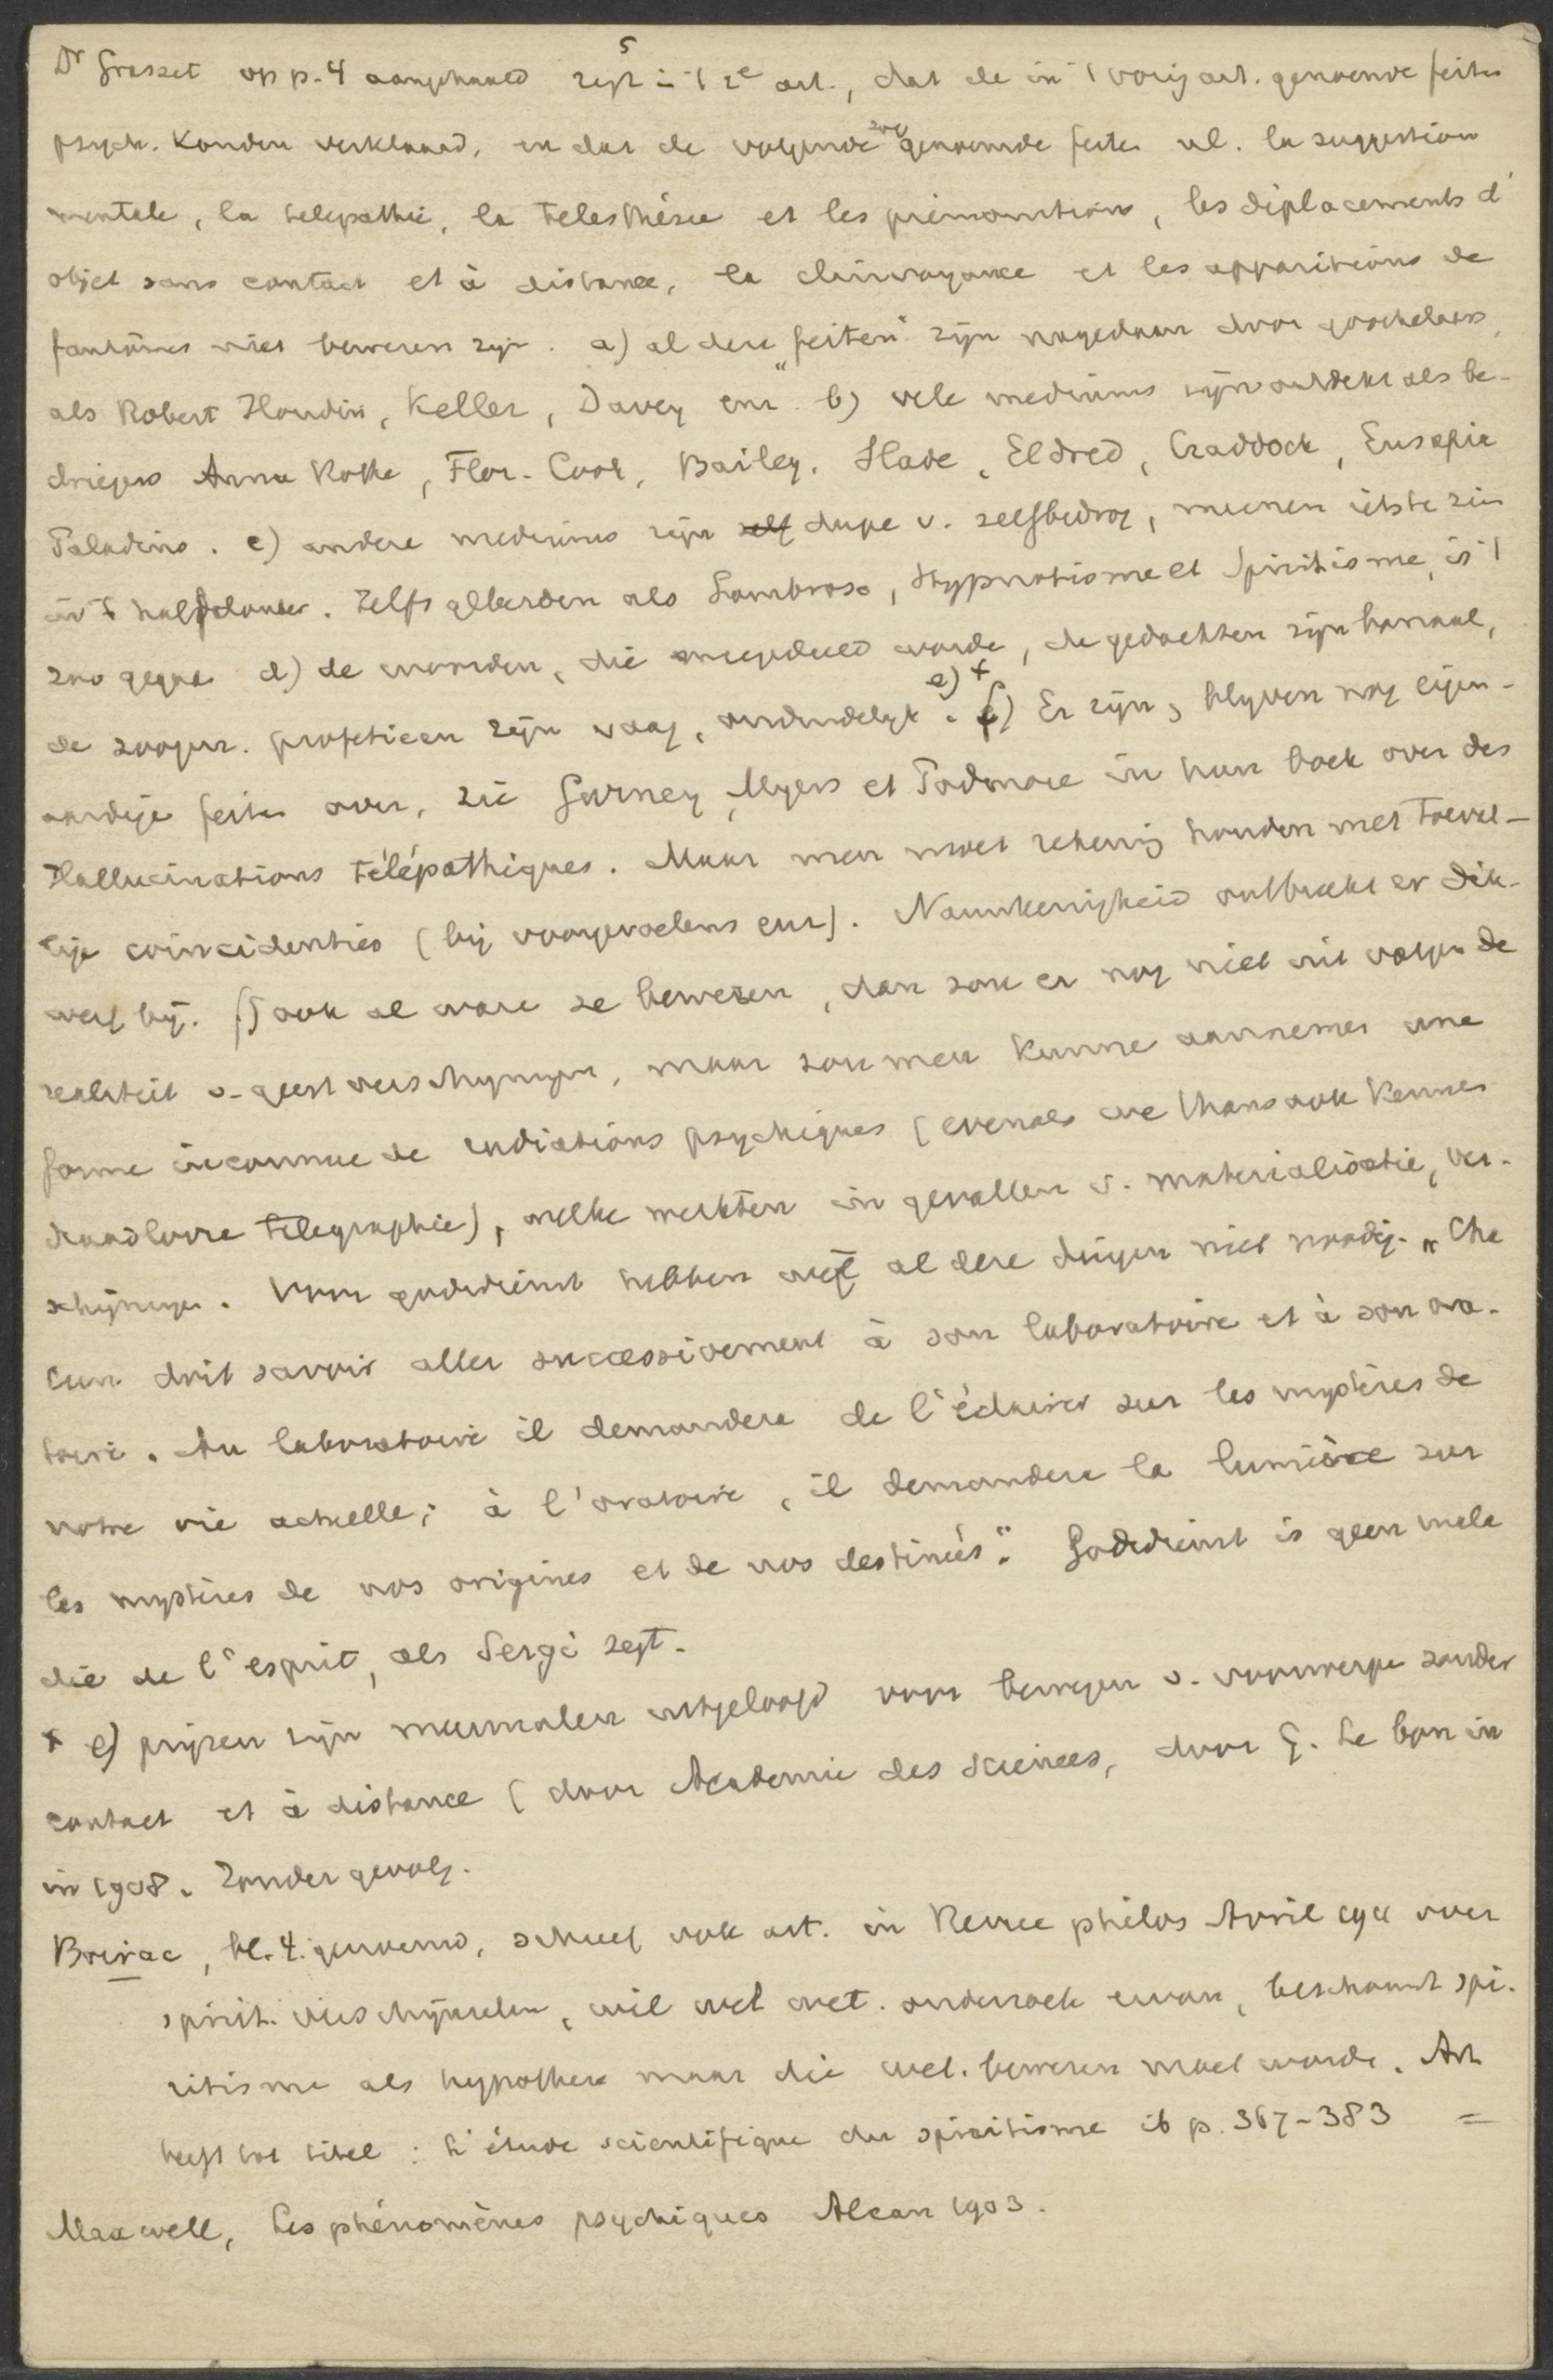 5
Dr Grasset op p. 4 aangehaald zegt in 't 2e art., dat de in 't vorig art. genoemde feiten
psych. konden verklaard, en dat de volgende zoogenoemde feiten nl. la suggestion
mentale, la telepathie, la Telesthésie et les prémonitions, les déplacements d'
objet sans contact et à distance, la clairvoyance et les apparitions de
fantômes niet bewezen zijn. a) al deze „feiten" zijn nagedaan door goochelaars,
als Robert Houdin, Keller, Davey enz. b) vele mediums zijn ontdekt als be-
driegers Anna Rothe, Flor. Cook, Bailey, Slade, Eldred, Craddock, Eusapia
Paladino. c) andere mediums zijn zelf dupe v. zelfbedrog, meenen iets te zien
in 't halfdonker. Zelfs geleerden als Lombroso, Hypnotisme et Spiritisme, is 't
zoo gegaan d) de woorden, die meegedeeld worde, de gedachten zijn banaal,
de zoogen. profetieen zijn vaag, onduidelijk. e) + f) Er zijn, blijven nog eigen-
aardige feiten over, zie Gurney, Myers et Podmore in hun boek over des
Hallucinations télépathiques. Maar men moet rekening houden met toeval-
lige coincidenties (bij voorgevoelens enz). Nauwkeurigheid ontbreekt er dik-
werf bij. f) ook al ware ze bewezen, dan zou er nog niet uit volgen de
realiteit v. geestverschijningen, maar zou men kunne aannemen une
forme inconnue de radiations psychiques (evenals we thans ook kennen
draadlooze telegraphie), welke werkten in gevallen v. materialisatie, ver-
schijningen. Voor godsdienst hebben we al deze dingen niet noodig. „Cha
cun doit savoir aller successivement à son laboratoire et à son ora-
toire. Au laboratoire il demandera de l'éclairer sur les mystères de
notre vie actuelle; à l'oratoire, il demandera la lumière sur
les mystères de nos origines et de nos destinées". Godsdienst is geen mala
die de l'esprit, als Sergi zegt.
+ e) prijzen zijn meermalen uitgeloofd voor bewegen v. voorwerpe zonder
contact et à distance (door Academie des Sciences, door G. Le bon in
in 1908. Zonder gevolg.
Boirac, bl. 4. genoemd, schreef ook art. in Revue philos Avril 1911 over
spirit. verschijnselen, wil wel wet. onderzoek ervan, beschouwt spi-
ritisme als hypothese maar die wet. bewezen moet worde. Art
heeft tot titel: L'étude scientifique du spiritisme ib p. 367-383 =
Maxwell, Les phénomènes psychiques Alcan 1903.